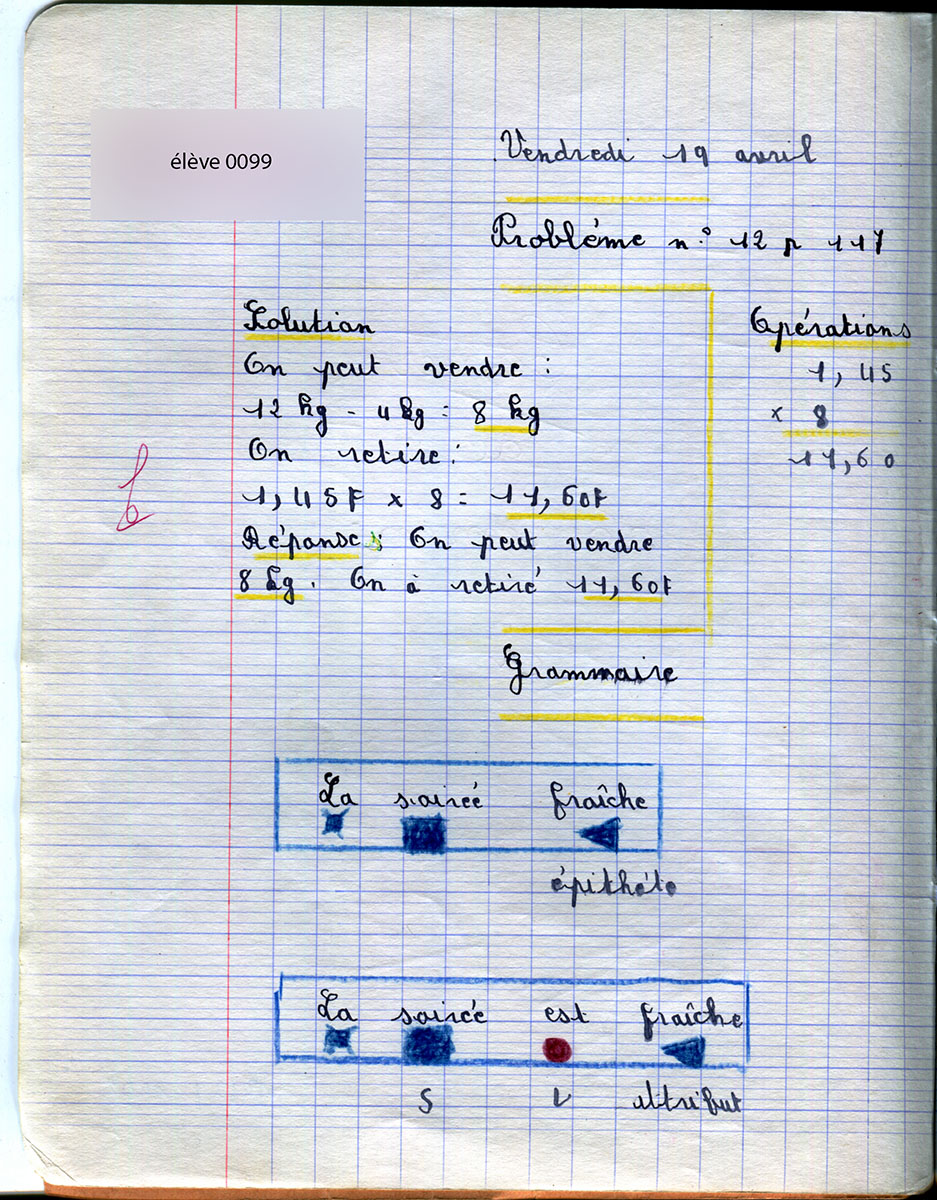 élève 0099
Vendredi 19 avril
Probléme n° 12 p 117
Solution
On peut vendre :
12 kg - 4 kg = 8 kg
On retire :
1,45F x 8 = 11,60F
Réponse : On peut vendre
8 kg. On à retiré 11,60F
Opérations
1,45
x 8
11,60
Grammaire
La soirée fraîche
épithéte
La soirée est fraîche
S V attribut